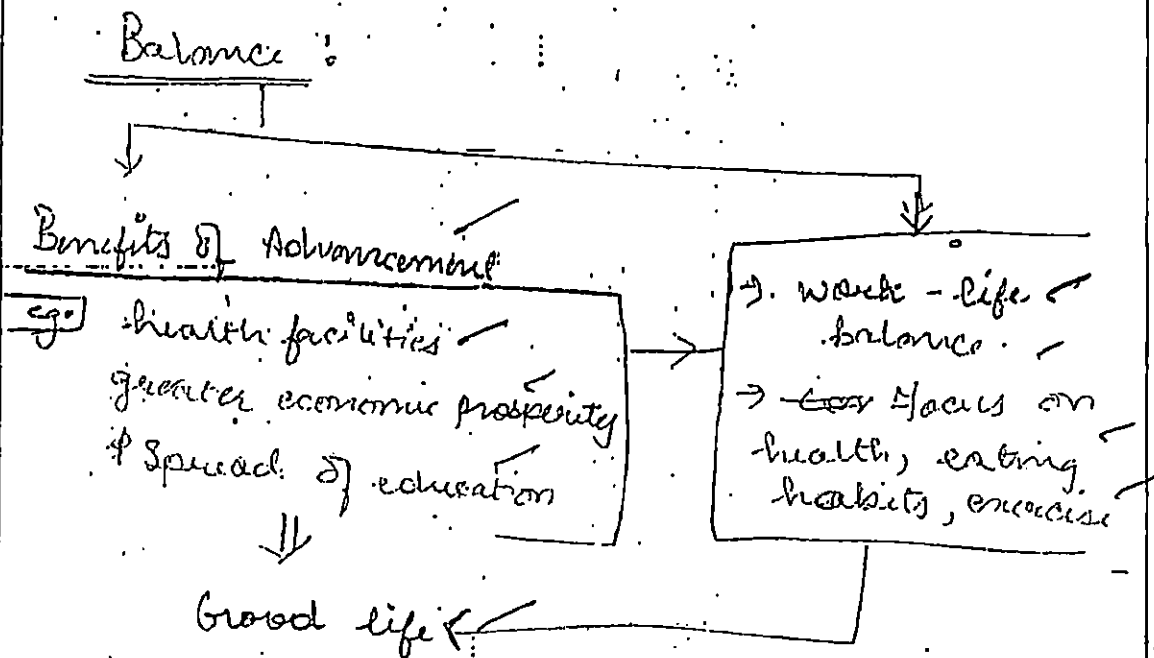 Balance :
Benefits of Advancement
eg. health facilities
greater economic prosperity
↑ Spread of education
Good life
→ work - life
balance.
→ focus on
health, eating
habits, exercise